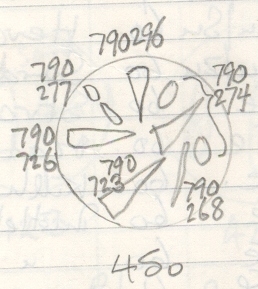 790296
790
277
790
274
790
726
790
723
790
268
450